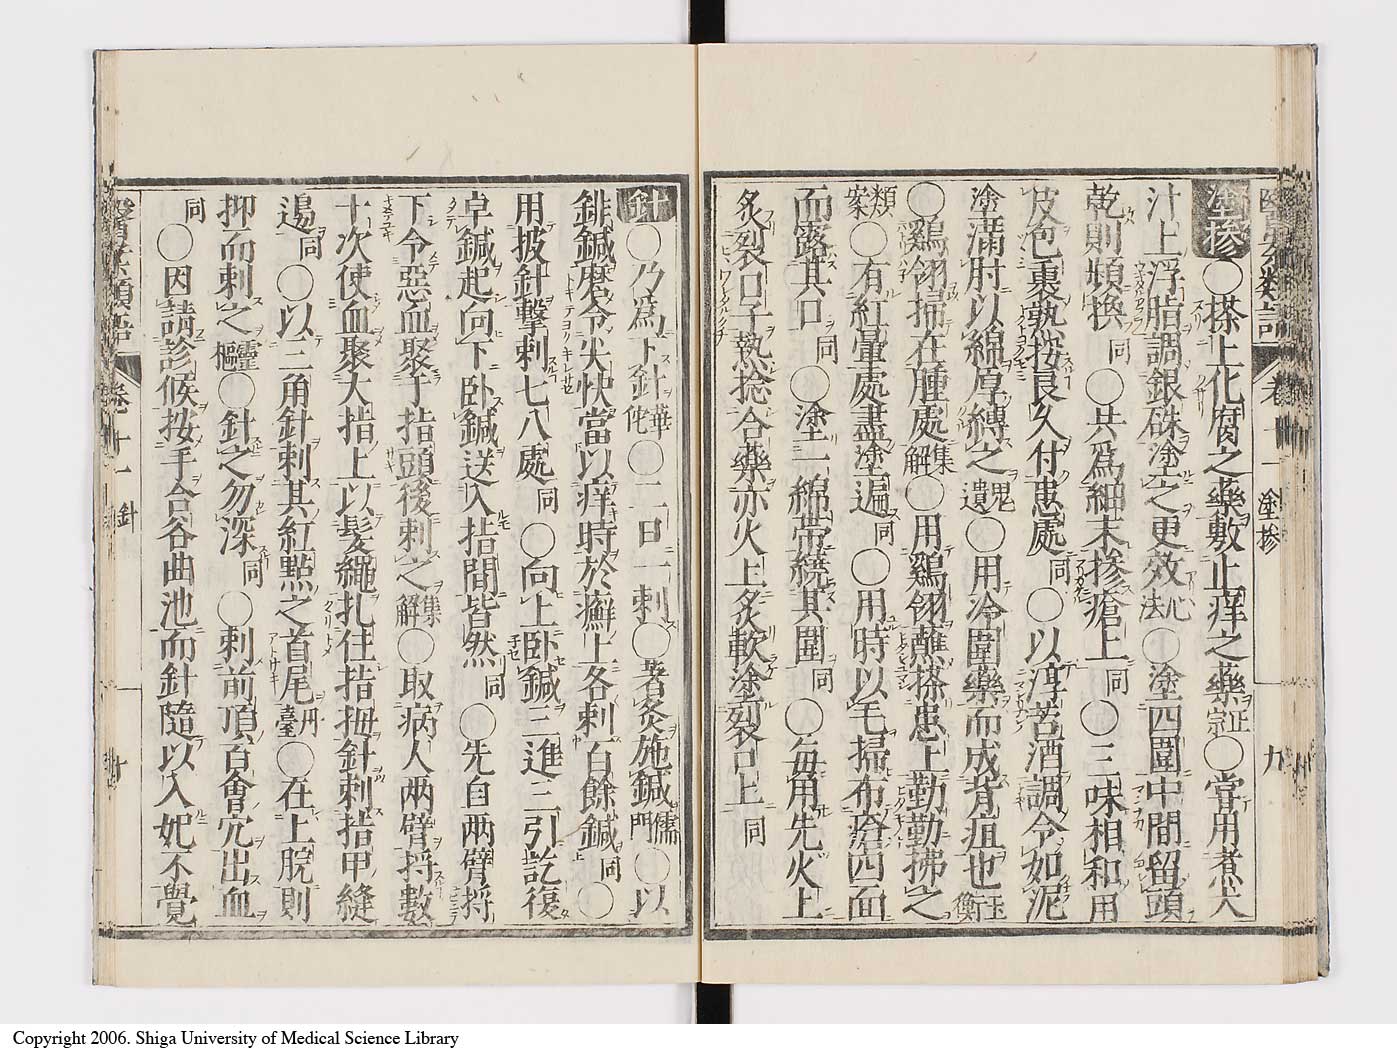 塗摻○搽上化腐之藥敷止痒之藥正宗○嘗用煮犬
汁上浮脂調銀硃塗之更效心法○塗四圍中間留頭
乾則頻換同○共爲細末摻瘡上同○三味相和用
皮包裹熟按良久付患處同○以淳苦酒調令如泥
塗滿肘以綿厚縛之鬼遺○用冷圍藥而成背疽也玉衡
○鷄翎掃在腫處集解○用鷄翎蘸搽患上勤勤拂之
類案○有紅暈處盡塗遍同○用時以毛掃布瘡四面
而露其口同○塗一綿帶繞其圍同○每用先火上
炙裂口子熱捻合藥亦火上炙軟塗裂口上同
醫案類語 卷十一 塗摻 九
針○乃爲下針華佗○二日一刺○著灸施鍼儒門○以
鋒鍼磨令尖快當以痒時於癬上各刺百餘鍼同○
用披針擊刺七八處同○向上臥鍼三進三引訖復
卓鍼起向下臥鍼送入指間皆然同○先自兩臂捋
下令惡血聚于指頭後刺之集解○取病人兩臂捋數
十次使血聚大指上以髮繩扎住指拇針刺指甲縫
邊同○以三角針刺其紅點之首尾丹臺○在上脘則
抑而刺之靈樞○針之勿深同○刺前頂百會穴出血
同○因請診候按手合谷曲池而針隨以入妃不覺
醫案類語 卷十一 針 十
Copyright 2006. Shiga University of Medical Science Library